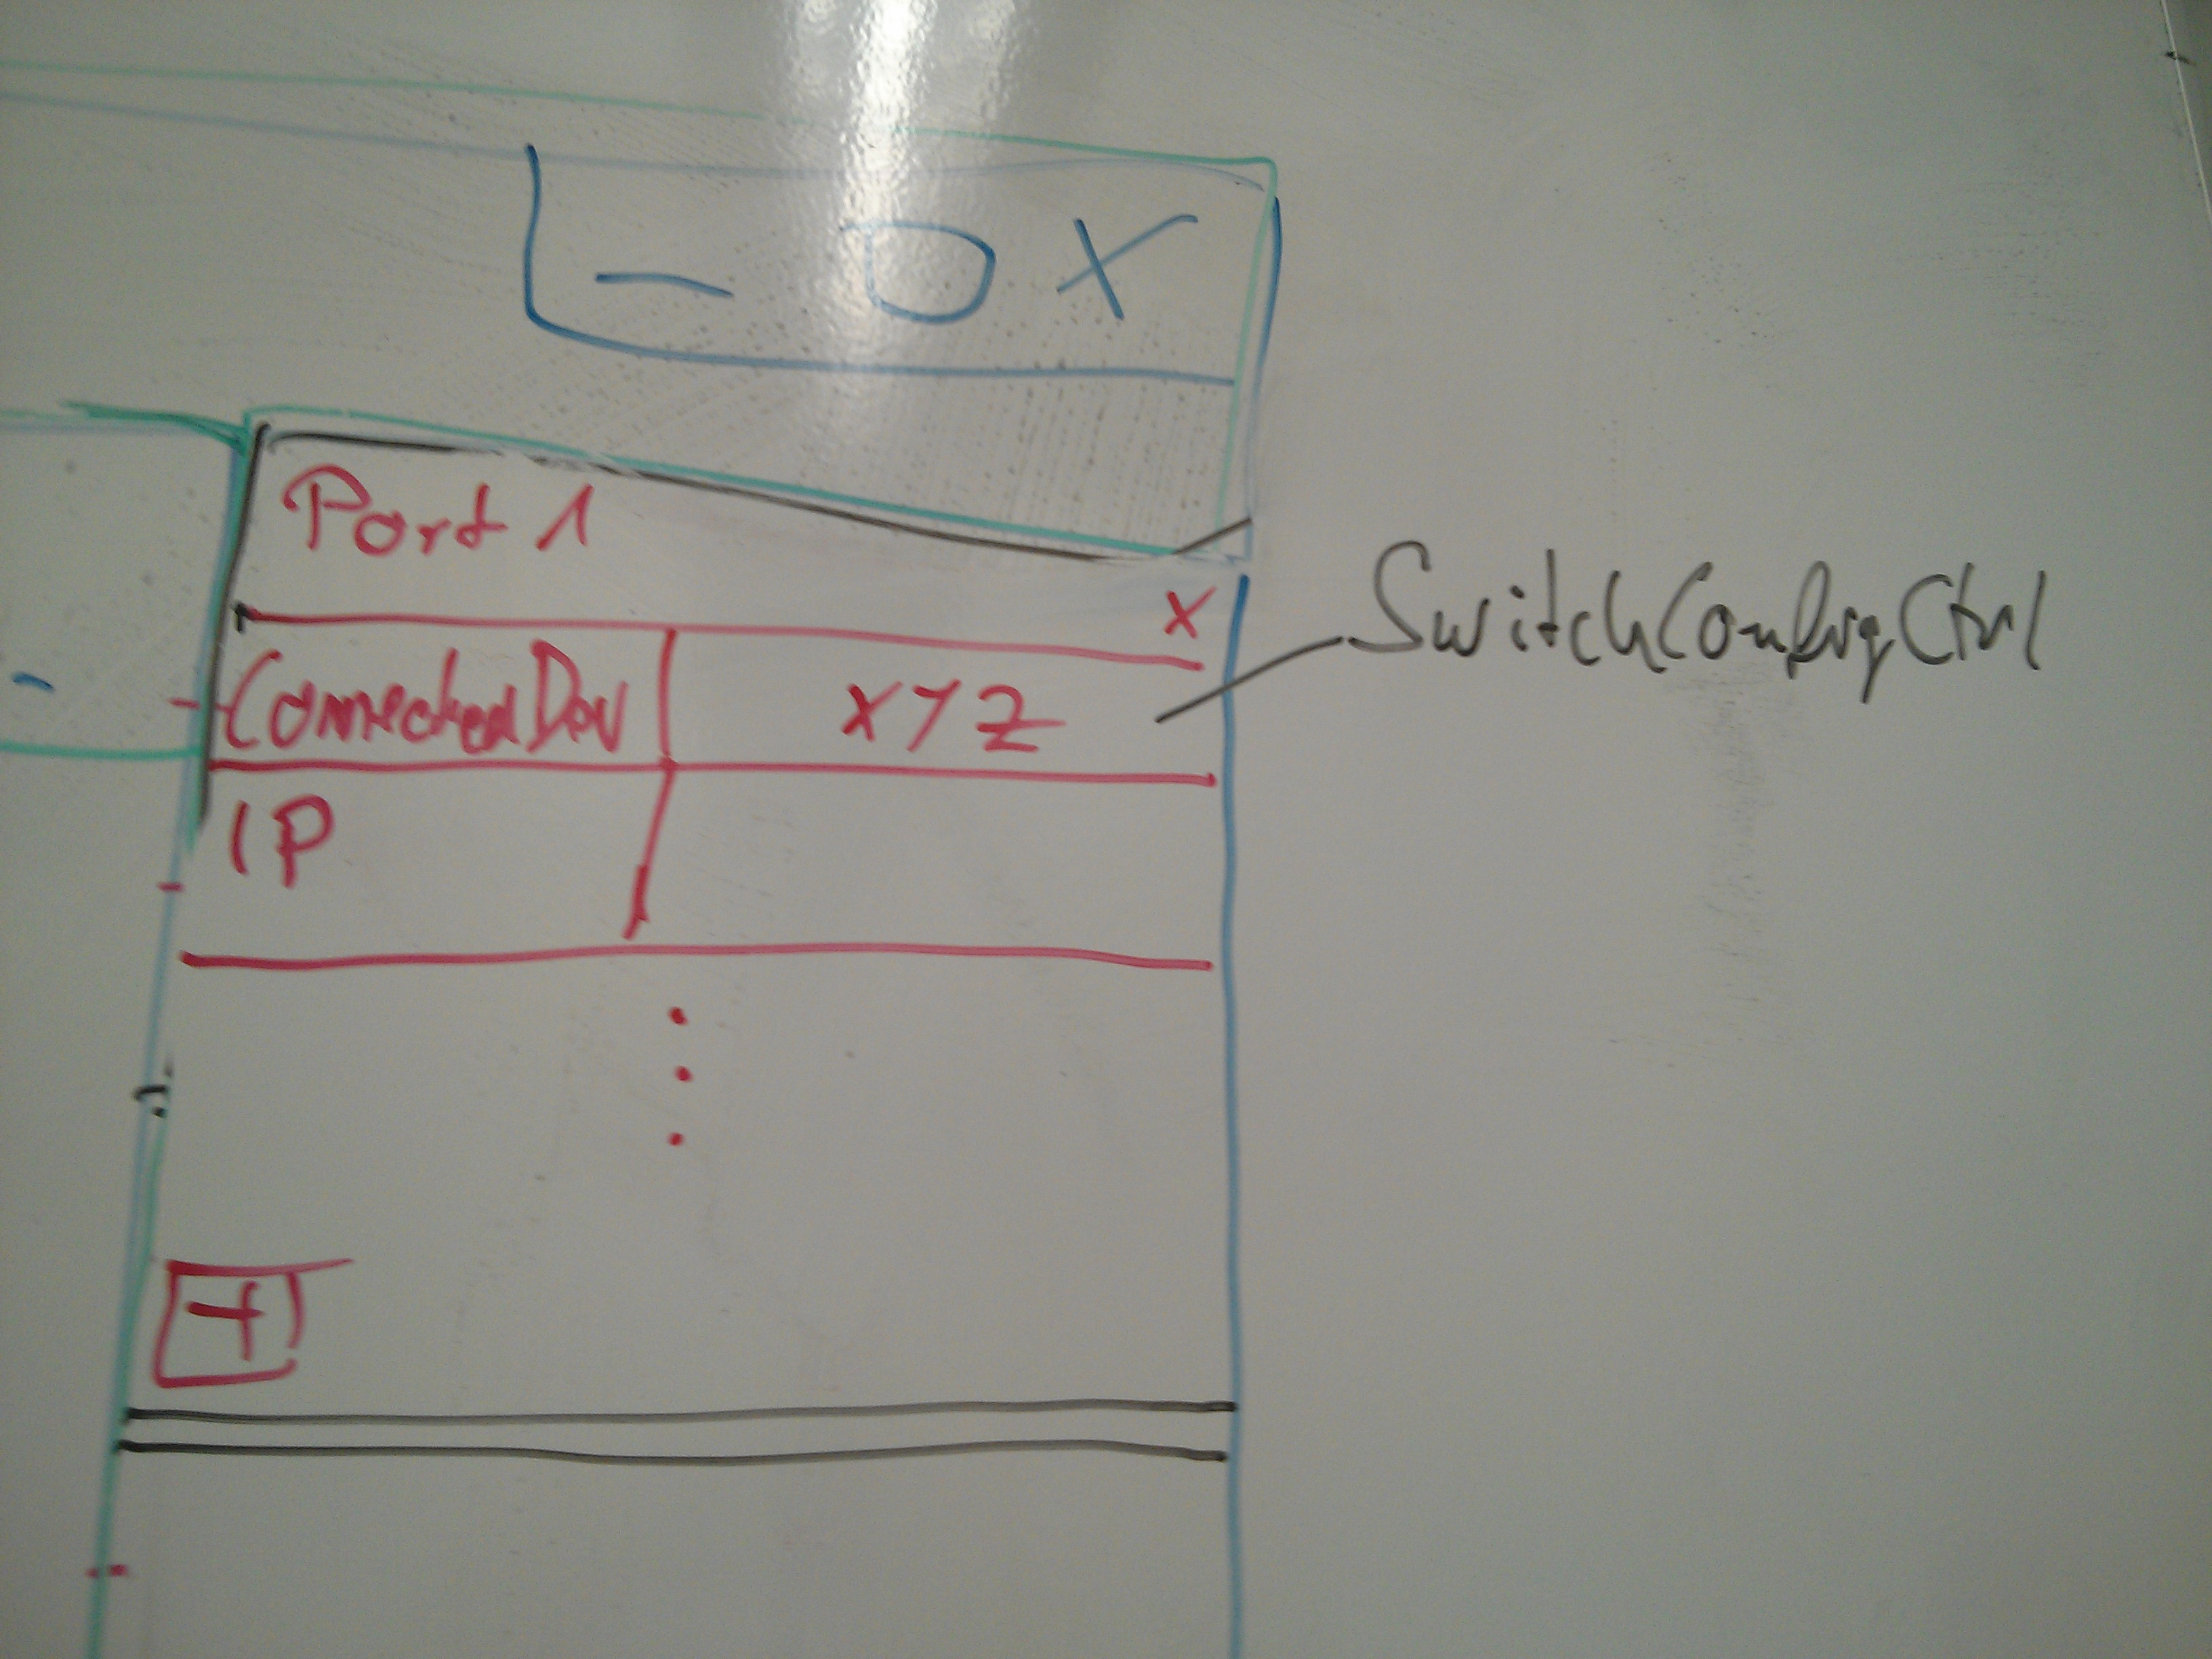 - □ X
Port 1
X
ConnectedDev
XYZ
SwitchConfigCtrl
IP
+